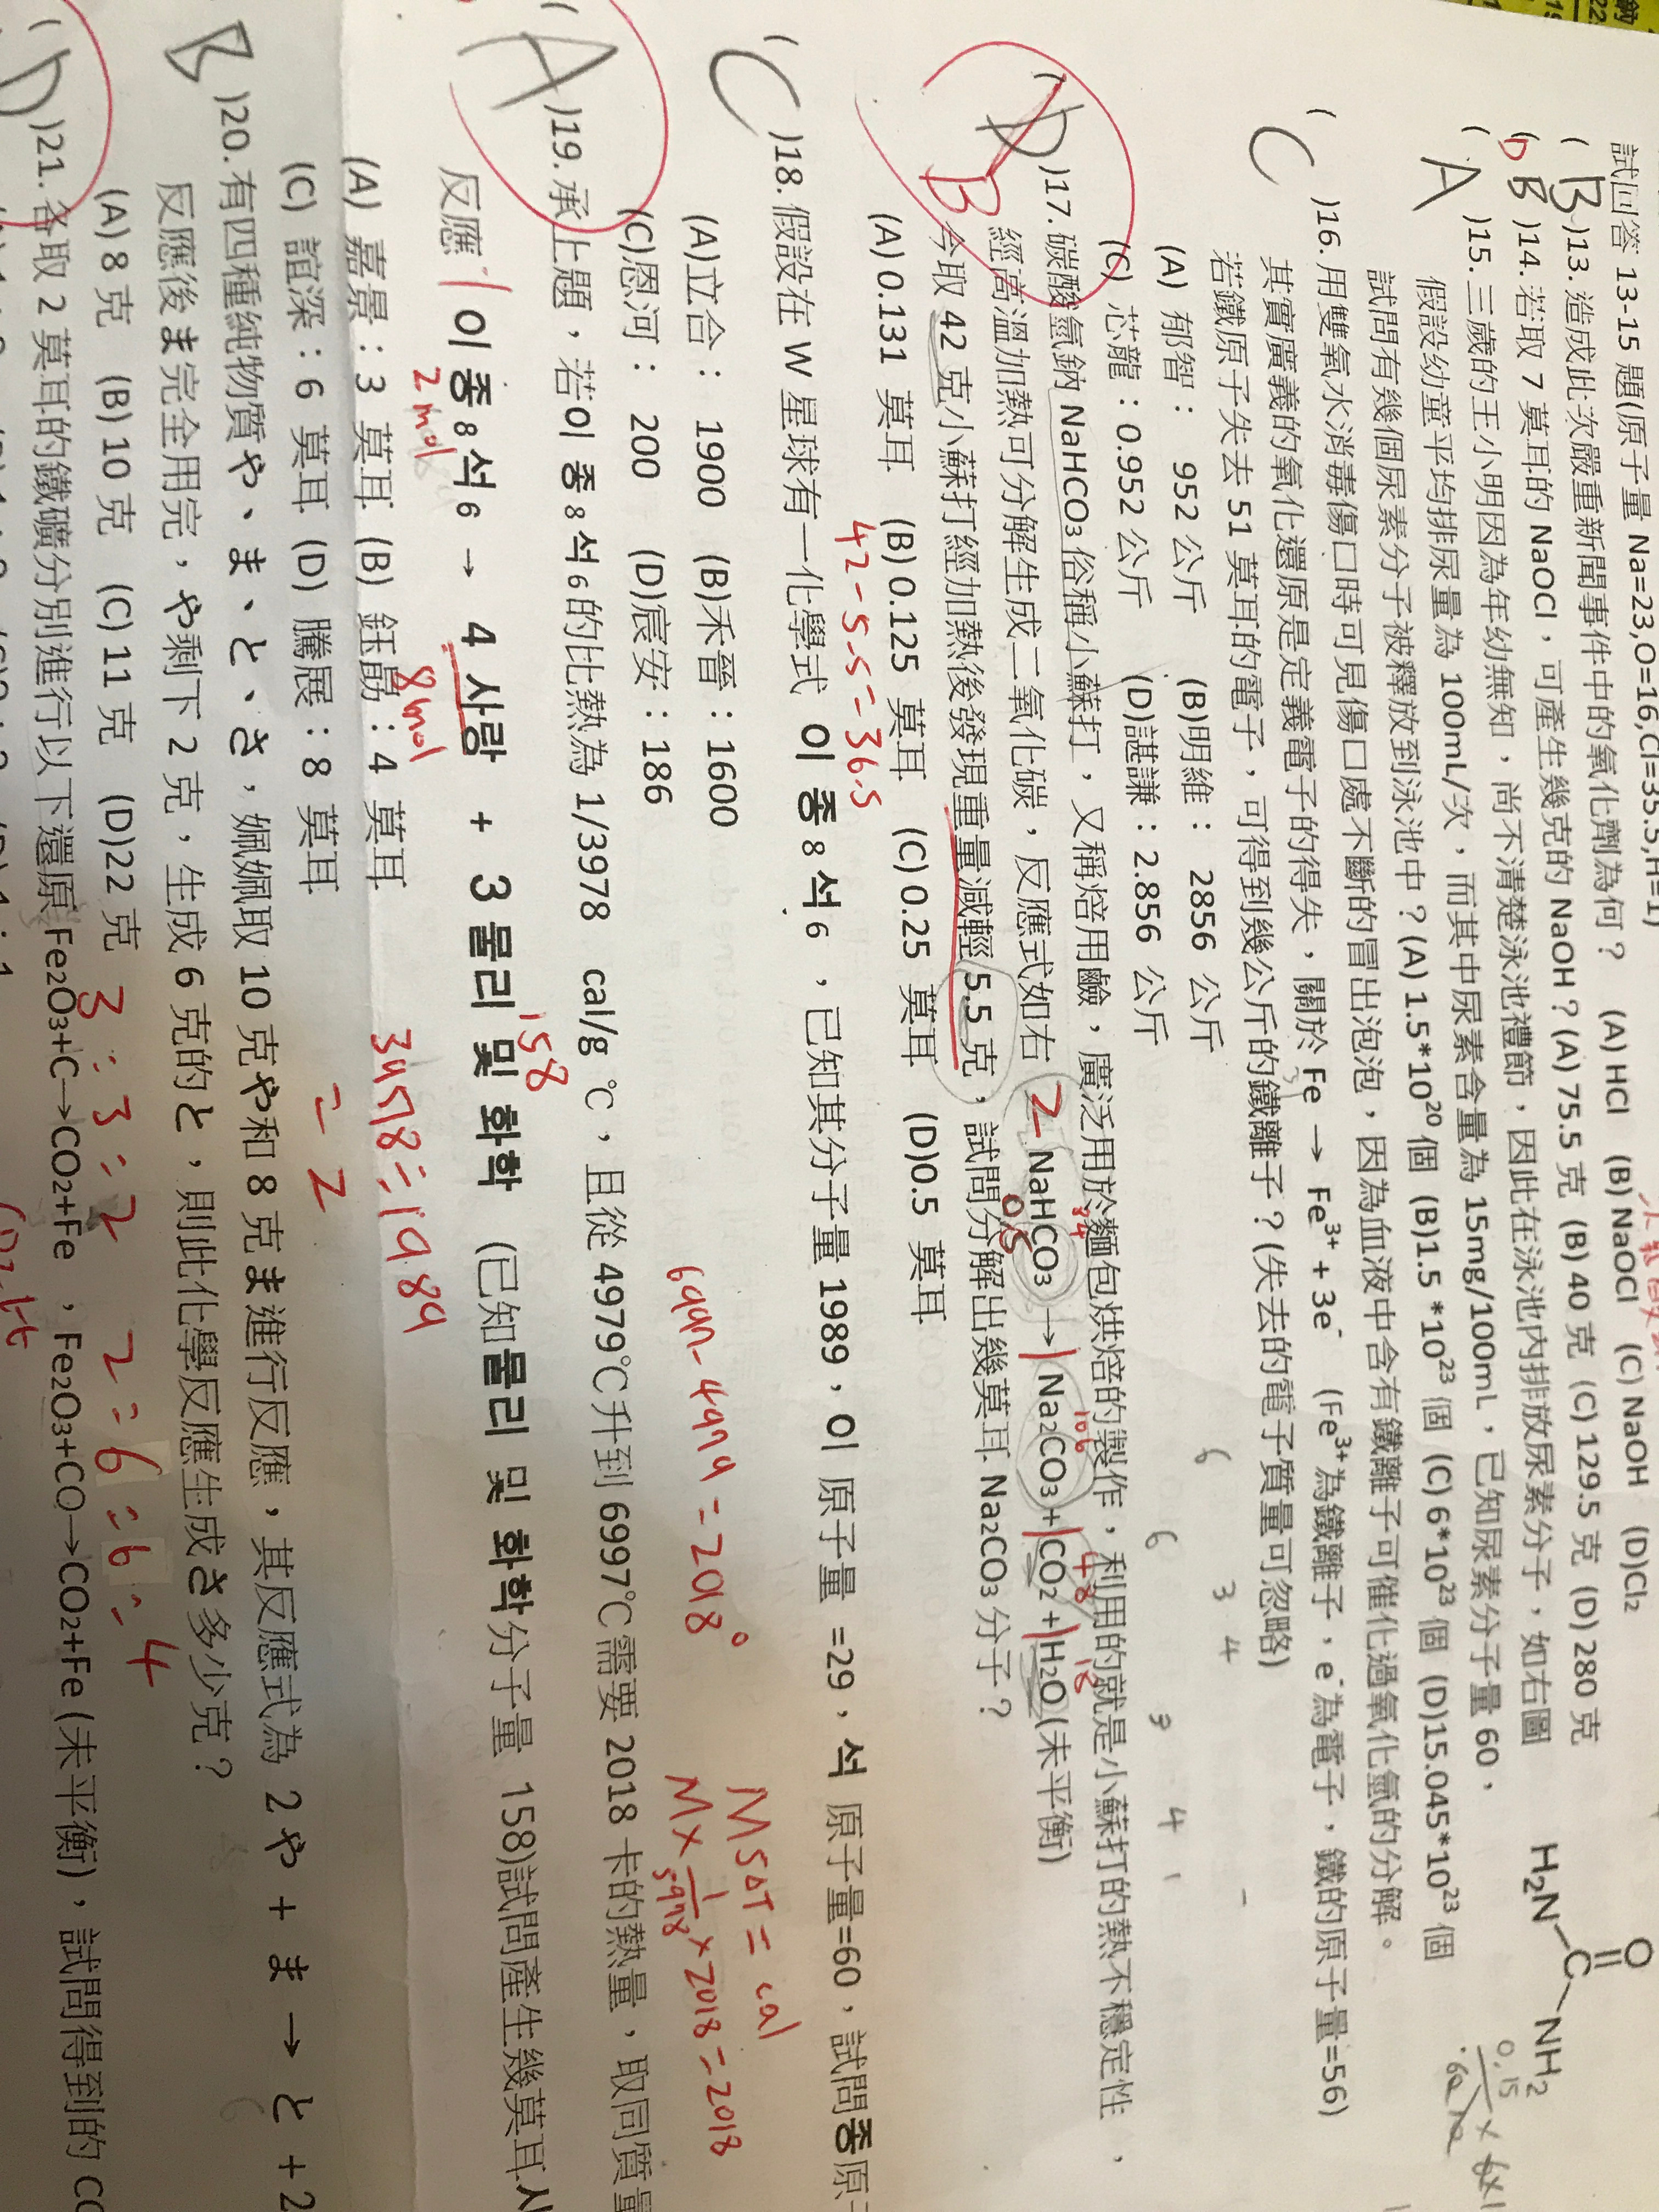 試回答 13-15 題(原子量 Na=23,O=16,Cl=35.5,H=1)
( B )13. 造成此次嚴重新聞事件中的氧化劑為何? (A) HCl (B) NaOCl (C) NaOH (D)Cl₂
( D B )14. 若取 7 莫耳的 NaOCl,可產生幾克的 NaOH? (A) 75.5 克 (B) 40 克 (C) 129.5 克 (D) 280 克
( A )15. 三歲的王小明因為年幼無知,尚不清楚泳池禮節,因此在泳池內排放尿素分子,如右圖
假設幼童平均排尿量為 100mL/次,而其中尿素含量為 15mg/100mL,已知尿素分子量 60,
試問有幾個尿素分子被釋放到泳池中?(A) 1.5*10²⁰個 (B)1.5 *10²³ 個 (C) 6*10²³ 個 (D)15.045*10²³ 個
O
H₂N C NH₂
0.15
( C )16. 用雙氧水消毒傷口時可見傷口處不斷的冒出泡泡,因為血液中含有鐵離子可催化過氧化氫的分解。
其實廣義的氧化還原是定義電子的得失,關於 Fe → Fe³⁺ + 3e⁻ (Fe³⁺為鐵離子,e⁻為電子,鐵的原子量=56)
若鐵原子失去 51 莫耳的電子,可得到幾公斤的鐵離子?(失去的電子質量可忽略)
(A) 郁智: 952 公斤 (B)明維: 2856 公斤
(C) 芯龍:0.952 公斤 (D)諶謙:2.856 公斤
6 6 3 4 3 4
( D B )17. 碳酸氫鈉 NaHCO₃ 俗稱小蘇打,又稱焙用鹼,廣泛用於麵包烘焙的製作,利用的就是小蘇打的熱不穩定性,
84 106 48 18
經高溫加熱可分解生成二氧化碳,反應式如右 2 NaHCO₃ → 1 Na₂CO₃+ 1 CO₂ + 1 H₂O (未平衡)
0.5
今取 42 克小蘇打經加熱後發現重量減輕 5.5 克,試問分解出幾莫耳 Na₂CO₃ 分子?
(A) 0.131 莫耳 (B) 0.125 莫耳 (C) 0.25 莫耳 (D)0.5 莫耳
42-5.5=36.5
( C )18. 假設在 W 星球有一化學式 이 종 8 석 6 ,已知其分子量 1989,이 原子量 =29,석 原子量=60,試問종原
(A)立合: 1900 (B)禾晉:1600
(C)恩河: 200 (D)宸安:186
6997-4979=2018°
MSΔT=cal
M×1/3978×2018=2018
( A )19. 承上題,若이 종 8 석 6 的比熱為 1/3978 cal/g ℃,且從 4979℃升到 6997℃需要 2018 卡的熱量,取同質量
反應 1 이 종 8 석 6 → 4 사랑 + 3 물리 및 화학 (已知물리 및 화학分子量 158)試問產生幾莫耳사
2mol 8mol 158
3978÷1989
=2
(A) 嘉景:3 莫耳 (B) 鈺勛:4 莫耳
(C) 誼深:6 莫耳 (D) 騰展:8 莫耳
B )20. 有四種純物質や、ま、と、さ,姵姵取 10 克や和 8 克ま進行反應,其反應式為 2 や + ま → と + 2
反應後ま完全用完,や剩下 2 克,生成 6 克的と,則此化學反應生成さ多少克?
(A) 8 克 (B) 10 克 (C) 11 克 (D)22 克
3:3:2 2=6:6:4
( D )21. 各取 2 莫耳的鐵礦分別進行以下還原 Fe₂O₃+C→CO₂+Fe ,Fe₂O₃+CO→CO₂+Fe (未平衡),試問得到的 CO